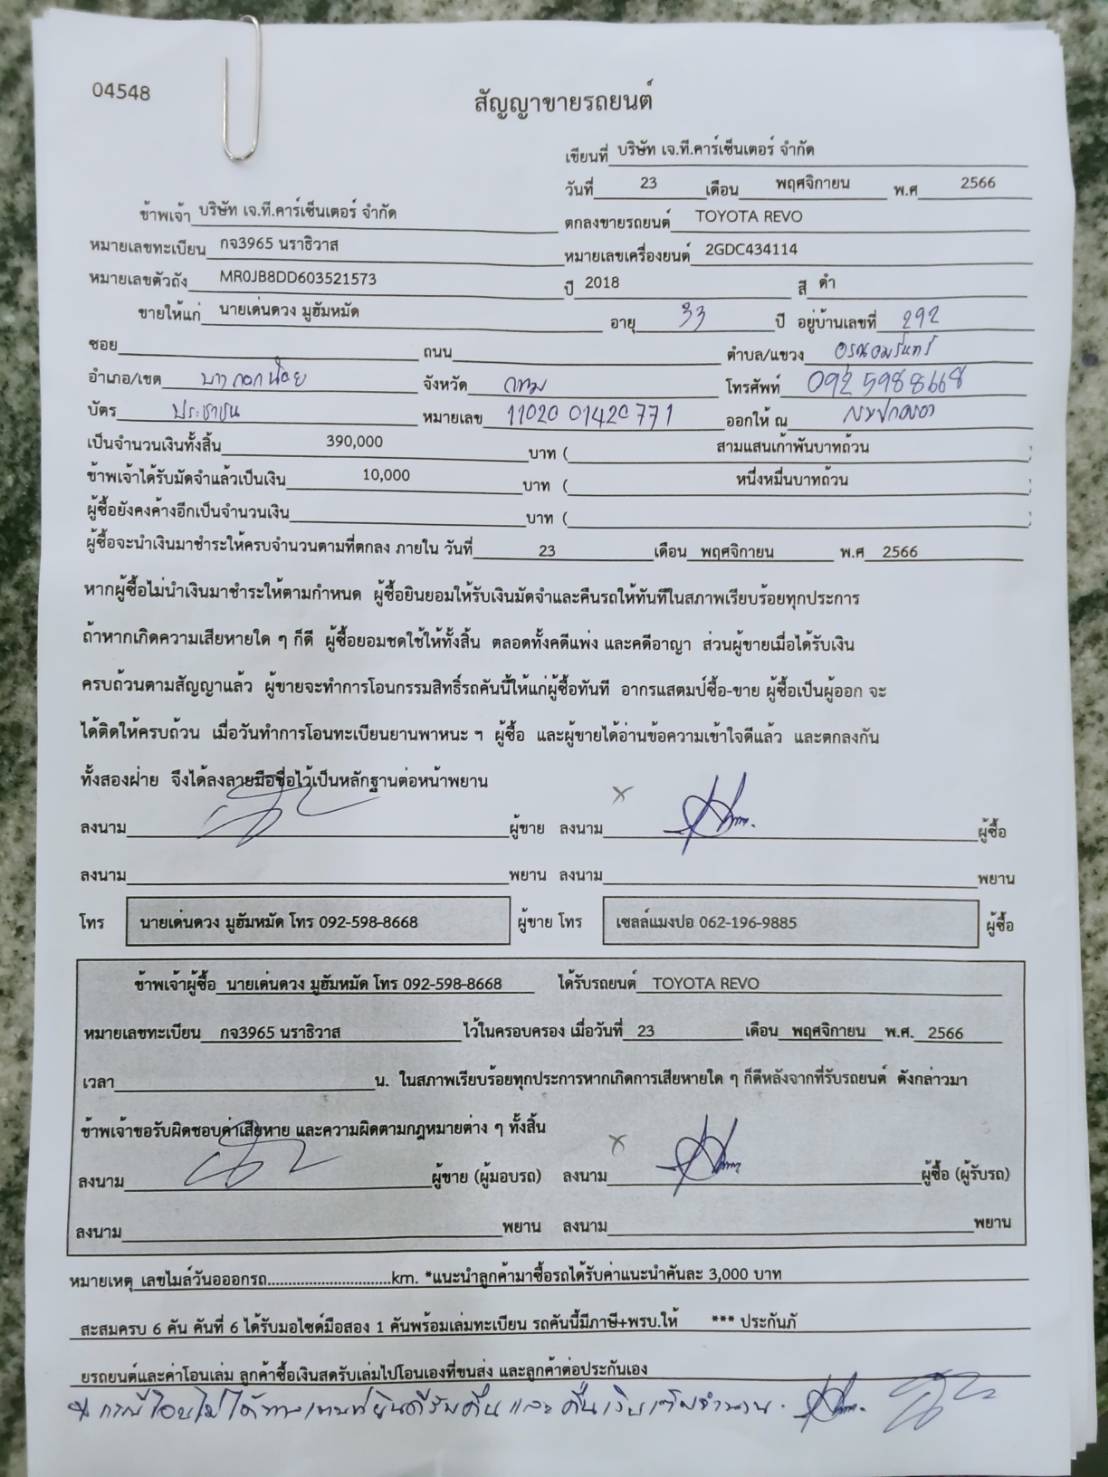 04548
สัญญาขายรถยนต์
เขียนที่ บริษัท เจ.ที.คาร์เซ็นเตอร์ จำกัด
วันที่ 23 เดือน พฤศจิกายน พ.ศ 2566
ข้าพเจ้า บริษัท เจ.ที.คาร์เซ็นเตอร์ จำกัด ตกลงขายรถยนต์ TOYOTA REVO
หมายเลขทะเบียน กจ3965 นราธิวาส หมายเลขเครื่องยนต์ 2GDC434114
หมายเลขตัวถัง MR0JB8DD603521573 ปี 2018 สี ดำ
ขายให้แก่ นายเด่นดวง มูฮัมหมัด อายุ 33 ปี อยู่บ้านเลขที่ 292
ซอย ถนน ตำบล/แขวง อรุณอมรินทร์
อำเภอ/เขต บางกอกน้อย จังหวัด กทม โทรศัพท์ 092 5988668
บัตร ประชาชน หมายเลข 11020 01420 771 ออกให้ ณ
เป็นจำนวนเงินทั้งสิ้น 390,000 บาท ( สามแสนเก้าพันบาทถ้วน )
ข้าพเจ้าได้รับมัดจำแล้วเป็นเงิน 10,000 บาท ( หนึ่งหมื่นบาทถ้วน )
ผู้ซื้อยังคงค้างอีกเป็นจำนวนเงิน บาท ( )
ผู้ซื้อจะนำเงินมาชำระให้ครบจำนวนตามที่ตกลง ภายใน วันที่ 23 เดือน พฤศจิกายน พ.ศ 2566
หากผู้ซื้อไม่นำเงินมาชำระให้ตามกำหนด ผู้ซื้อยินยอมให้รับเงินมัดจำและคืนรถให้ทันทีในสภาพเรียบร้อยทุกประการ
ถ้าหากเกิดความเสียหายใด ๆ ก็ดี ผู้ซื้อยอมชดใช้ให้ทั้งสิ้น ตลอดทั้งคดีแพ่ง และคดีอาญา ส่วนผู้ขายเมื่อได้รับเงิน
ครบถ้วนตามสัญญาแล้ว ผู้ขายจะทำการโอนกรรมสิทธิ์รถคันนี้ให้แก่ผู้ซื้อทันที อากรแสตมป์ซื้อ-ขาย ผู้ซื้อเป็นผู้ออก จะ
ได้ติดให้ครบถ้วน เมื่อวันทำการโอนทะเบียนยานพาหนะ ฯ ผู้ซื้อ และผู้ขายได้อ่านข้อความเข้าใจดีแล้ว และตกลงกัน
ทั้งสองฝ่าย จึงได้ลงลายมือชื่อไว้เป็นหลักฐานต่อหน้าพยาน
ลงนาม ผู้ขาย ลงนาม ผู้ซื้อ
ลงนาม พยาน ลงนาม พยาน
โทร นายเด่นดวง มูฮัมหมัด โทร 092-598-8668 ผู้ขาย โทร เซลล์แมงปอ 062-196-9885 ผู้ซื้อ
ข้าพเจ้าผู้ซื้อ นายเด่นดวง มูฮัมหมัด โทร 092-598-8668 ได้รับรถยนต์ TOYOTA REVO
หมายเลขทะเบียน กจ3965 นราธิวาส ไว้ในครอบครอง เมื่อวันที่ 23 เดือน พฤศจิกายน พ.ศ. 2566
เวลา น. ในสภาพเรียบร้อยทุกประการหากเกิดการเสียหายใด ๆ ก็ดีหลังจากที่รับรถยนต์ ดังกล่าวมา
ข้าพเจ้าขอรับผิดชอบค่าเสียหาย และความผิดตามกฎหมายต่าง ๆ ทั้งสิ้น
ลงนาม ผู้ขาย (ผู้มอบรถ) ลงนาม ผู้ซื้อ (ผู้รับรถ)
ลงนาม พยาน ลงนาม พยาน
หมายเหตุ เลขไมล์วันอออกรถ..............................km. *แนะนำลูกค้ามาซื้อรถได้รับค่าแนะนำคันละ 3,000 บาท
สะสมครบ 6 คัน คันที่ 6 ได้รับมอไซด์มือสอง 1 คันพร้อมเล่มทะเบียน รถคันนี้มีภาษี+พรบ.ให้ *** ประกันภั
ยรถยนต์และค่าโอนเล่ม ลูกค้าซื้อเงินสดรับเล่มไปโอนเองที่ขนส่ง และลูกค้าต่อประกันเอง
* กรณีโอนไม่ได้ทางเต็นท์ยินดีรับคืน และ คืนเงินเต็มจำนวน.